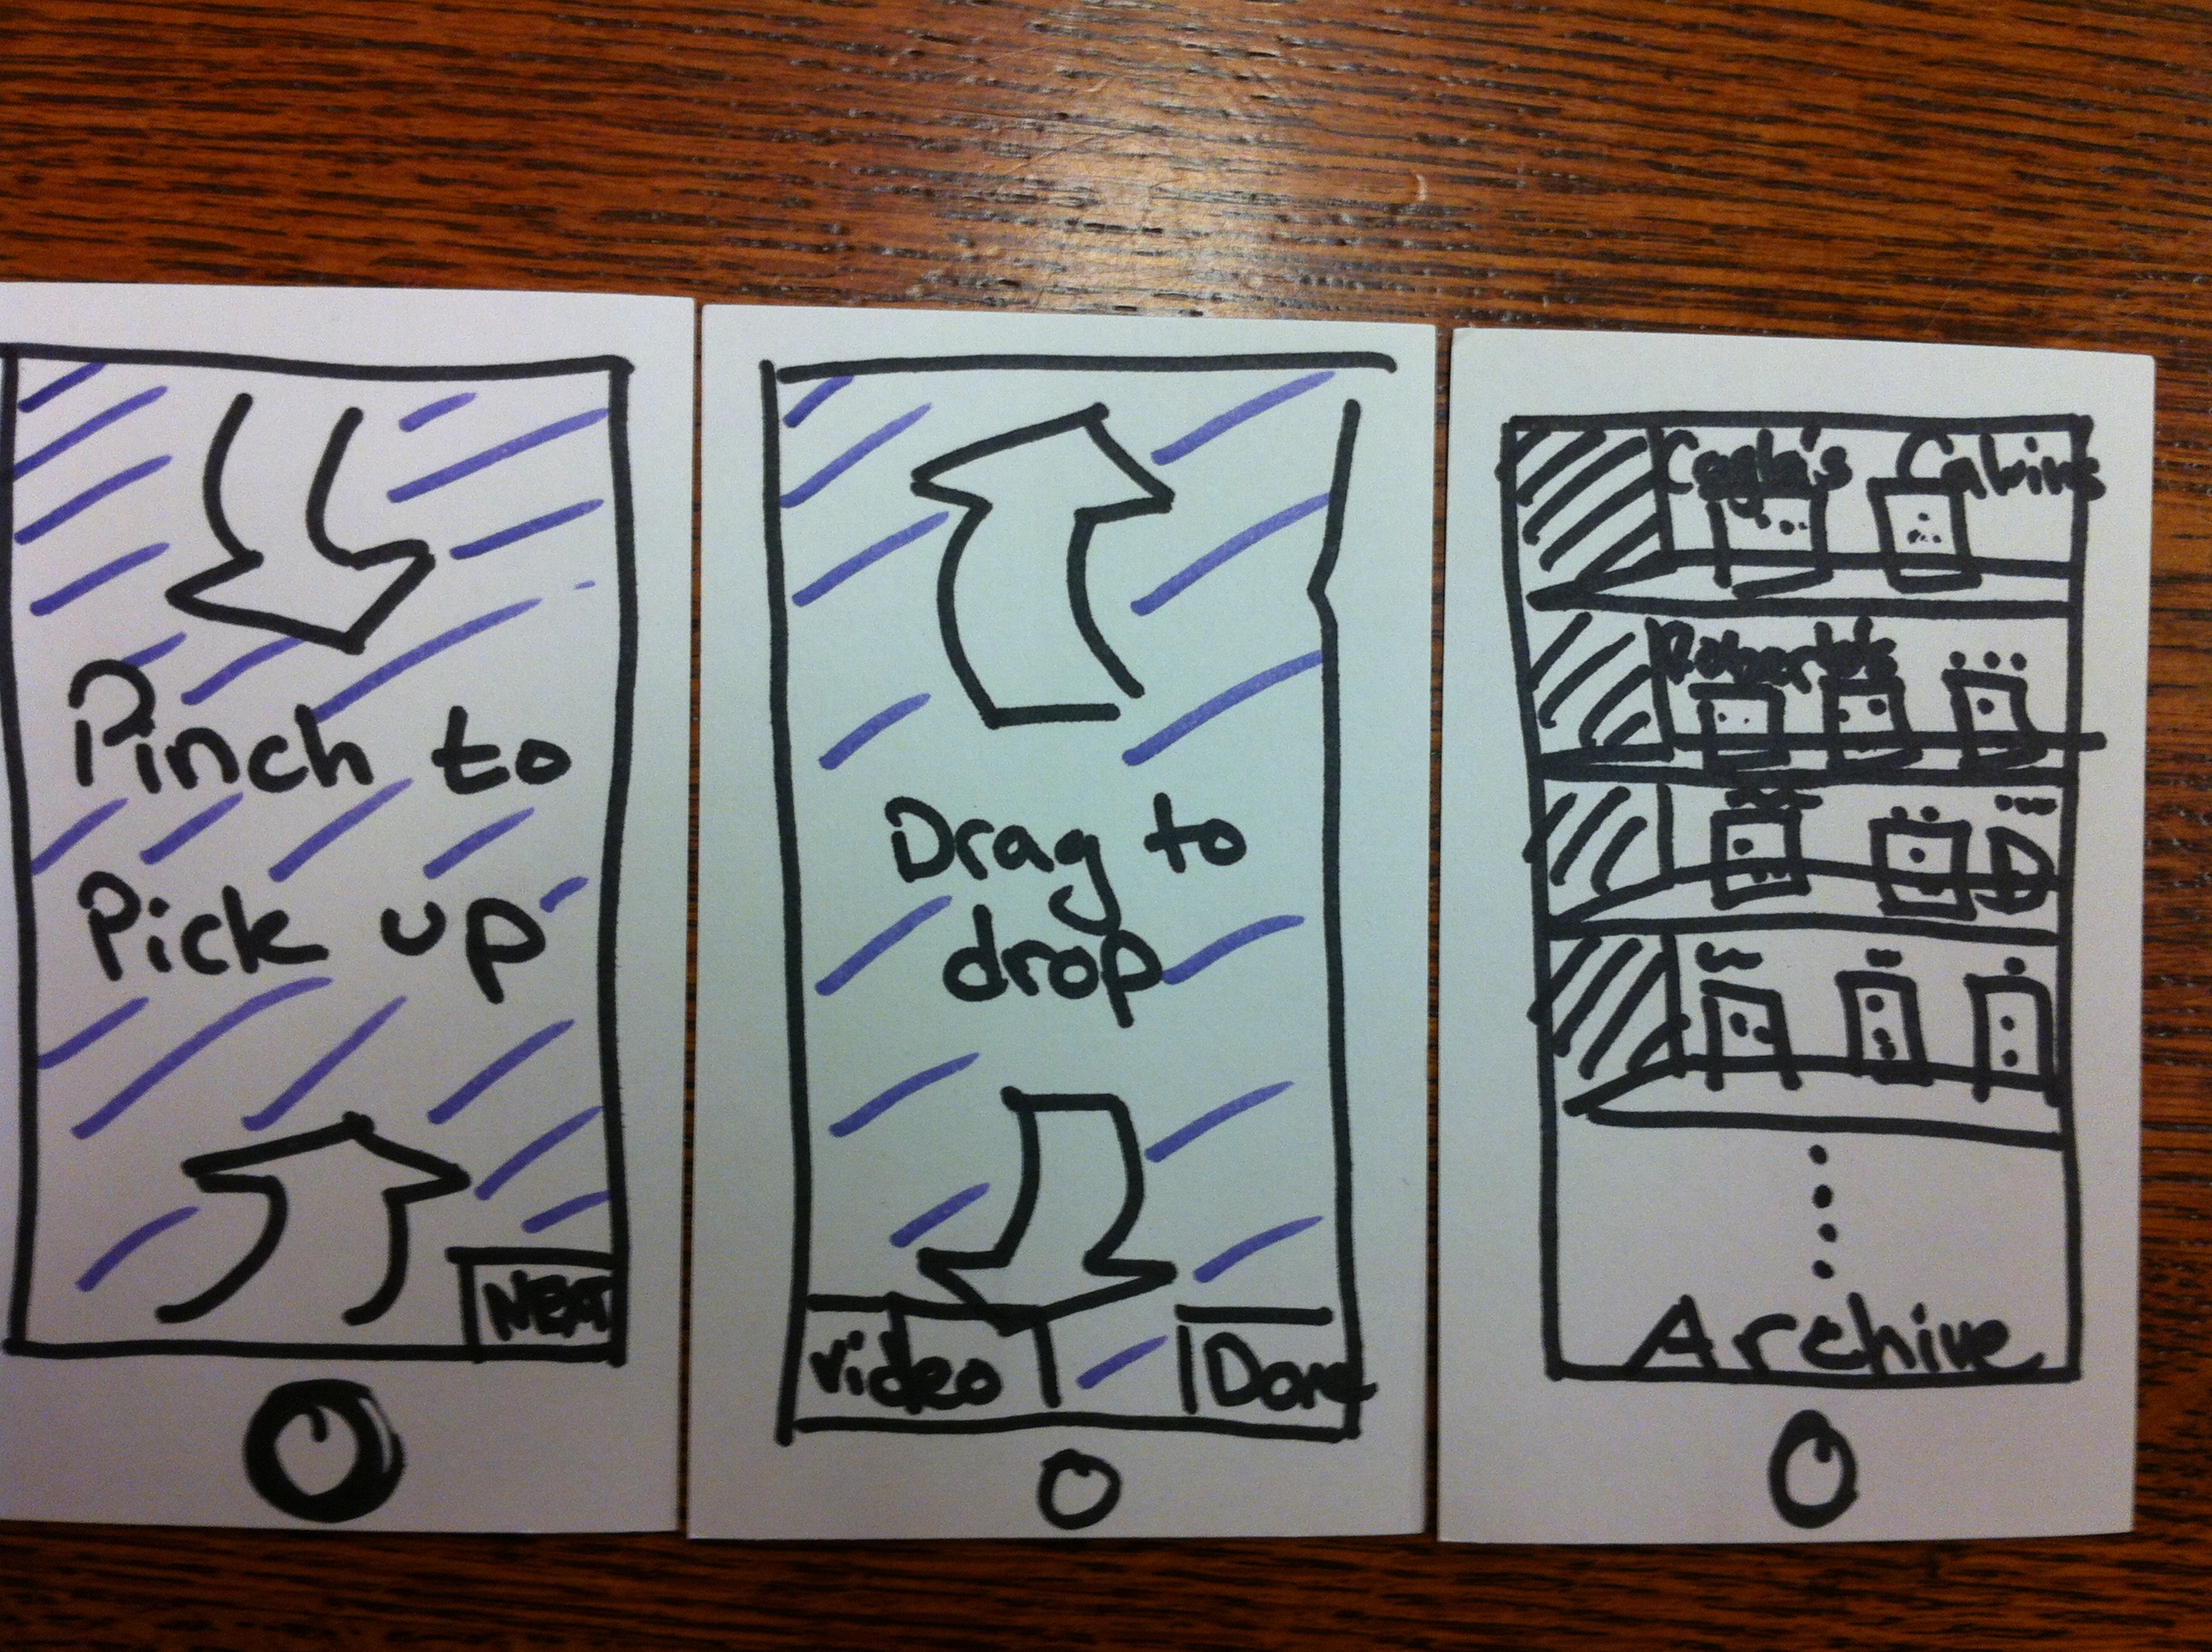 Pinch to
Pick up
NEXT
Drag to
drop
video
Done
Cagla's Calvins
Roberto's
Archive